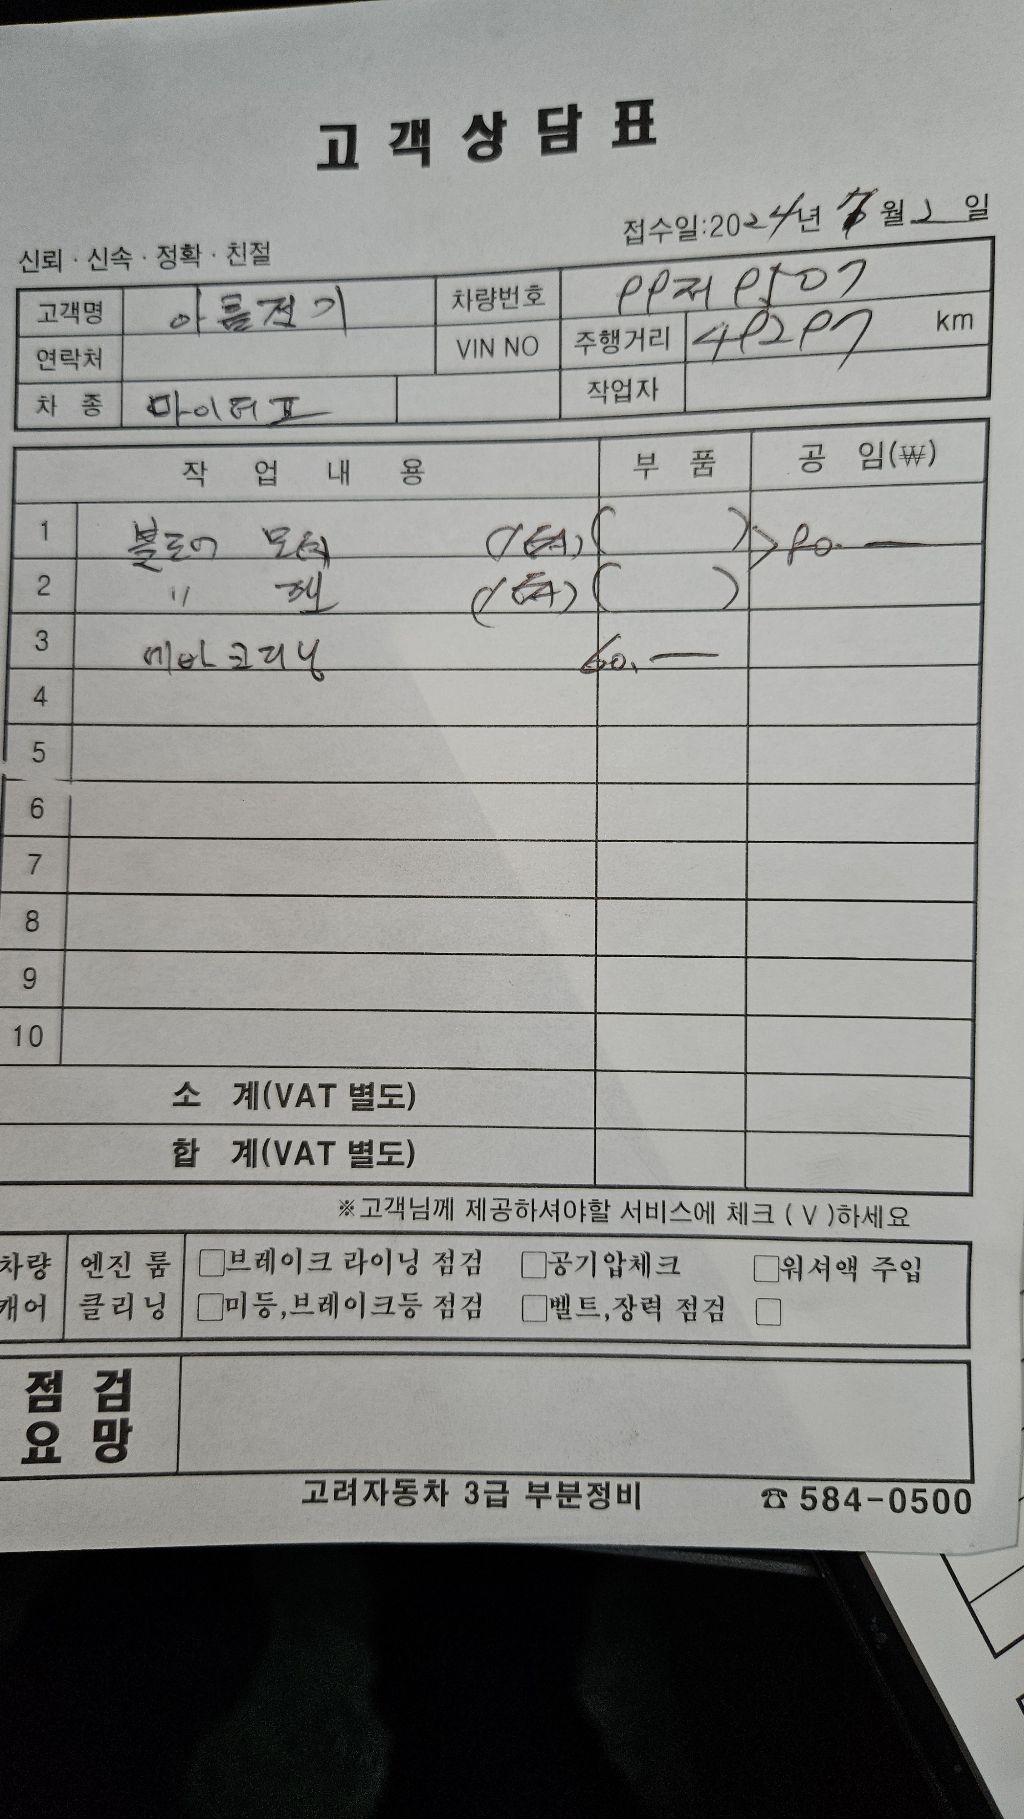 고객상담표
접수일:2024년 7월 2일
신뢰 · 신속 · 정확 · 친절
고객명 아름전기 차량번호
연락처 VIN NO 주행거리 km
차 종 마이티 작업자
작 업 내 용 부 품 공 임(₩)
1 블로어 모터 (1EA) ( ) > 80. —
2 " 휀 (1EA) ( )
3 에바크리닝 60. —
4
5
6
7
8
9
10
소 계(VAT 별도)
합 계(VAT 별도)
※고객님께 제공하셔야할 서비스에 체크 ( V )하세요
차량 엔진 룸 □브레이크 라이닝 점검 □공기압체크 □워셔액 주입
캐어 클리닝 □미등,브레이크등 점검 □벨트,장력 점검 □
점 검
요 망
고려자동차 3급 부분정비 ☎ 584-0500